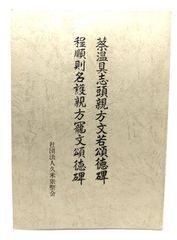 蔡温具志頭親方文若頌徳碑
程順則名護親方寵文頌徳碑
社団法人久米崇聖会